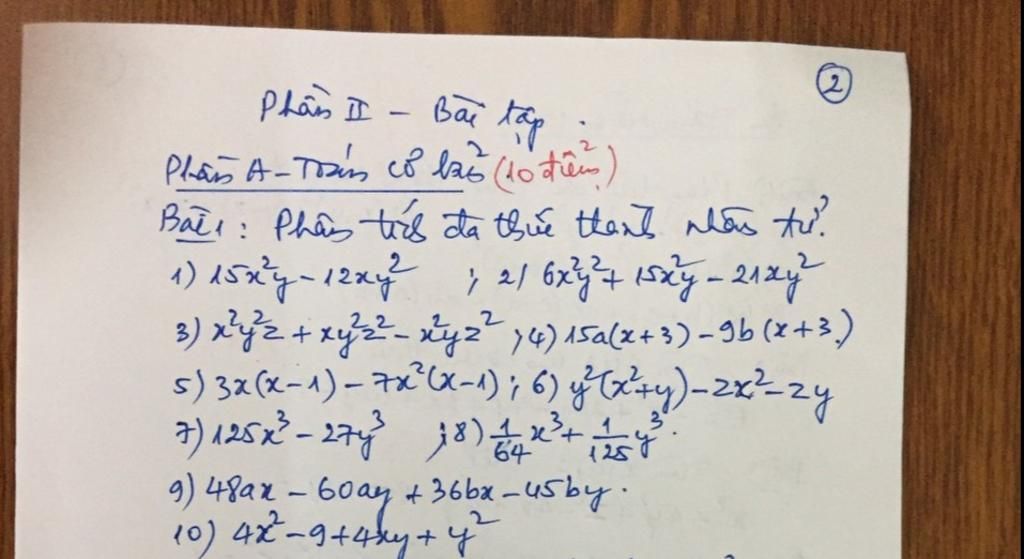 ②
Phần II - Bài tập.
Phần A - Toán cơ bản (10 điểm)
Bài 1: Phân tích đa thức thành nhân tử.
1) 15x²y - 12xy² ; 2) 6x²y² + 15x²y - 21xy²
3) x²y²z + xy²z² - x²yz² ; 4) 15a(x+3) - 9b(x+3)
5) 3x(x-1) - 7x²(x-1) ; 6) y²(x²+y) - zx² - zy
7) 125x³ - 27y³ ; 8) 1/64 x³ + 1/125 y³.
9) 48ax - 60ay + 36bx - 45by.
10) 4x² - 9 + 4xy + y²